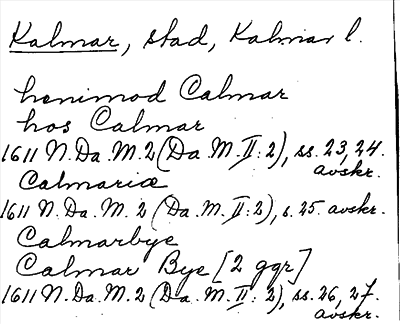 Kalmar, stad, Kalmar l.
henimod Calmar
hos Calmar
1611 N. Da. M. 2 (Da. M. II: 2), ss. 23, 24.
avskr.
Calmariæ
1611 N. Da. M. 2 (Da. M. II: 2), s. 25. avskr.
Calmarbye
Calmar Bye [2 ggr]
1611 N. Da. M. 2 (Da. M. II: 2), ss. 26, 27.
avskr.